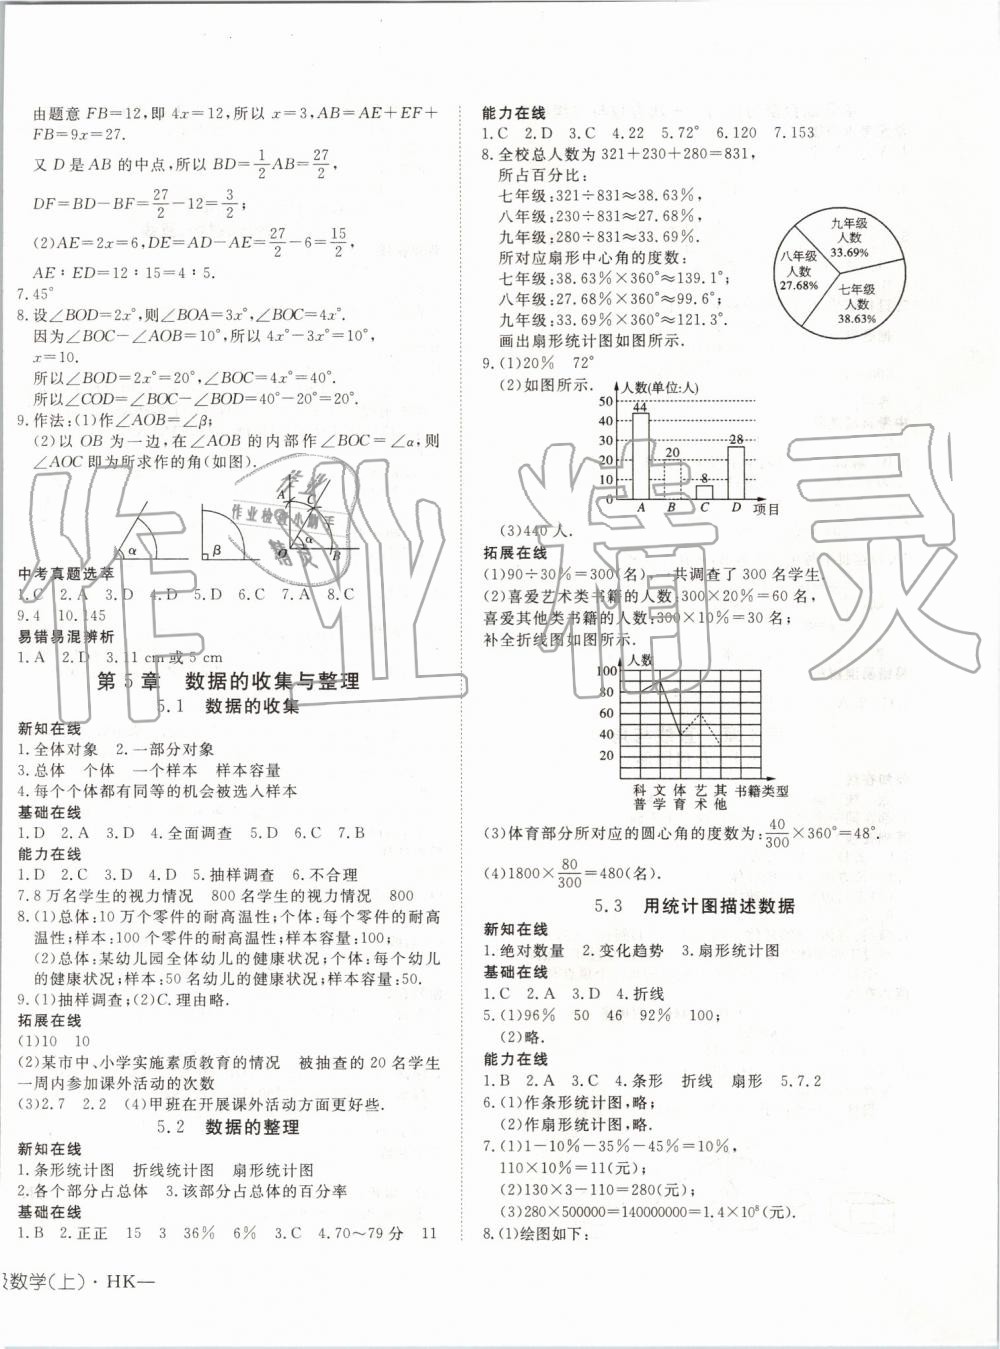 由题意 FB=12,即 4x=12,所以 x=3,AB=AE+EF+
FB=9x=27.
又 D 是 AB 的中点,所以 BD=1/2AB=27/2,
DF=BD-BF=27/2-12=3/2;
(2)AE=2x=6,DE=AD-AE=27/2-6=15/2,
AE∶ED=12∶15=4∶5.
7.45°
8.设∠BOD=2x°,则∠BOA=3x°,∠BOC=4x°.
因为∠BOC-∠AOB=10°,所以 4x°-3x°=10°,
x=10.
所以∠BOD=2x°=20°,∠BOC=4x°=40°.
所以∠COD=∠BOC-∠BOD=40°-20°=20°.
9.作法:(1)作∠AOB=∠β;
(2)以 OB 为一边,在∠AOB 的内部作∠BOC=∠α,则
∠AOC 即为所求作的角(如图).
α β A C O α B
中考真题选萃
1.C 2.A 3.D 4.D 5.D 6.C 7.A 8.C
9.4 10.145
易错易混辨析
1.A 2.D 3.11 cm 或 5 cm
第 5 章 数据的收集与整理
5.1 数据的收集
新知在线
1.全体对象 2.一部分对象
3.总体 个体 一个样本 样本容量
4.每个个体都有同等的机会被选入样本
基础在线
1.D 2.A 3.D 4.全面调查 5.D 6.C 7.B
能力在线
1.D 2.C 3.D 4.D 5.抽样调查 6.不合理
7.8 万名学生的视力情况 800 名学生的视力情况 800
8.(1)总体:10 万个零件的耐高温性;个体:每个零件的耐高
温性;样本:100 个零件的耐高温性;样本容量:100;
(2)总体:某幼儿园全体幼儿的健康状况;个体:每个幼儿
的健康状况;样本:50 名幼儿的健康状况;样本容量:50.
9.(1)抽样调查;(2)C.理由略.
拓展在线
(1)10 10
(2)某市中、小学实施素质教育的情况 被抽查的 20 名学生
一周内参加课外活动的次数
(3)2.7 2.2 (4)甲班在开展课外活动方面更好些.
5.2 数据的整理
新知在线
1.条形统计图 折线统计图 扇形统计图
2.各个部分占总体 3.该部分占总体的百分率
基础在线
1.B 2.正正 15 3 36% 6% 3.C 4.70～79 分 11
级数学(上)·HK—
能力在线
1.C 2.D 3.C 4.22 5.72° 6.120 7.153
8.全校总人数为 321+230+280=831,
所占百分比:
七年级:321÷831≈38.63%,
八年级:230÷831≈27.68%,
九年级:280÷831≈33.69%.
所对应扇形中心角的度数:
七年级:38.63%×360°≈139.1°;
八年级:27.68%×360°≈99.6°;
九年级:33.69%×360°≈121.3°.
画出扇形统计图如图所示.
九年级
人数
33.69%
八年级
人数
27.68%
七年级
人数
38.63%
9.(1)20% 72°
(2)如图所示.
人数(单位:人)
50
40
30
20
10
0
44 20 8 28
A B C D 项目
(3)440 人.
拓展在线
(1)90÷30%=300(名),一共调查了 300 名学生.
(2)喜爱艺术类书籍的人数:300×20%=60 名,
喜爱其他类书籍的人数:300×10%=30 名;
补全折线图如图所示.
人数
100
80
60
40
20
科 文 体 艺 其 书籍类型
普 学 育 术 他
(3)体育部分所对应的圆心角的度数为:40/300×360°=48°.
(4)1800×80/300=480(名).
5.3 用统计图描述数据
新知在线
1.绝对数量 2.变化趋势 3.扇形统计图
基础在线
1.C 2.A 3.D 4.折线
5.(1)96% 50 46 92% 100;
(2)略.
能力在线
1.B 2.A 3.C 4.条形 折线 扇形 5.7.2
6.(1)作条形统计图,略;
(2)作扇形统计图,略.
7.(1)1-10%-35%-45%=10%,
110×10%=11(元);
(2)130×3-110=280(元);
(3)280×500000=140000000=1.4×10⁸(元).
8.(1)绘图如下:
作业精灵
作业
作业检查小助手
精灵